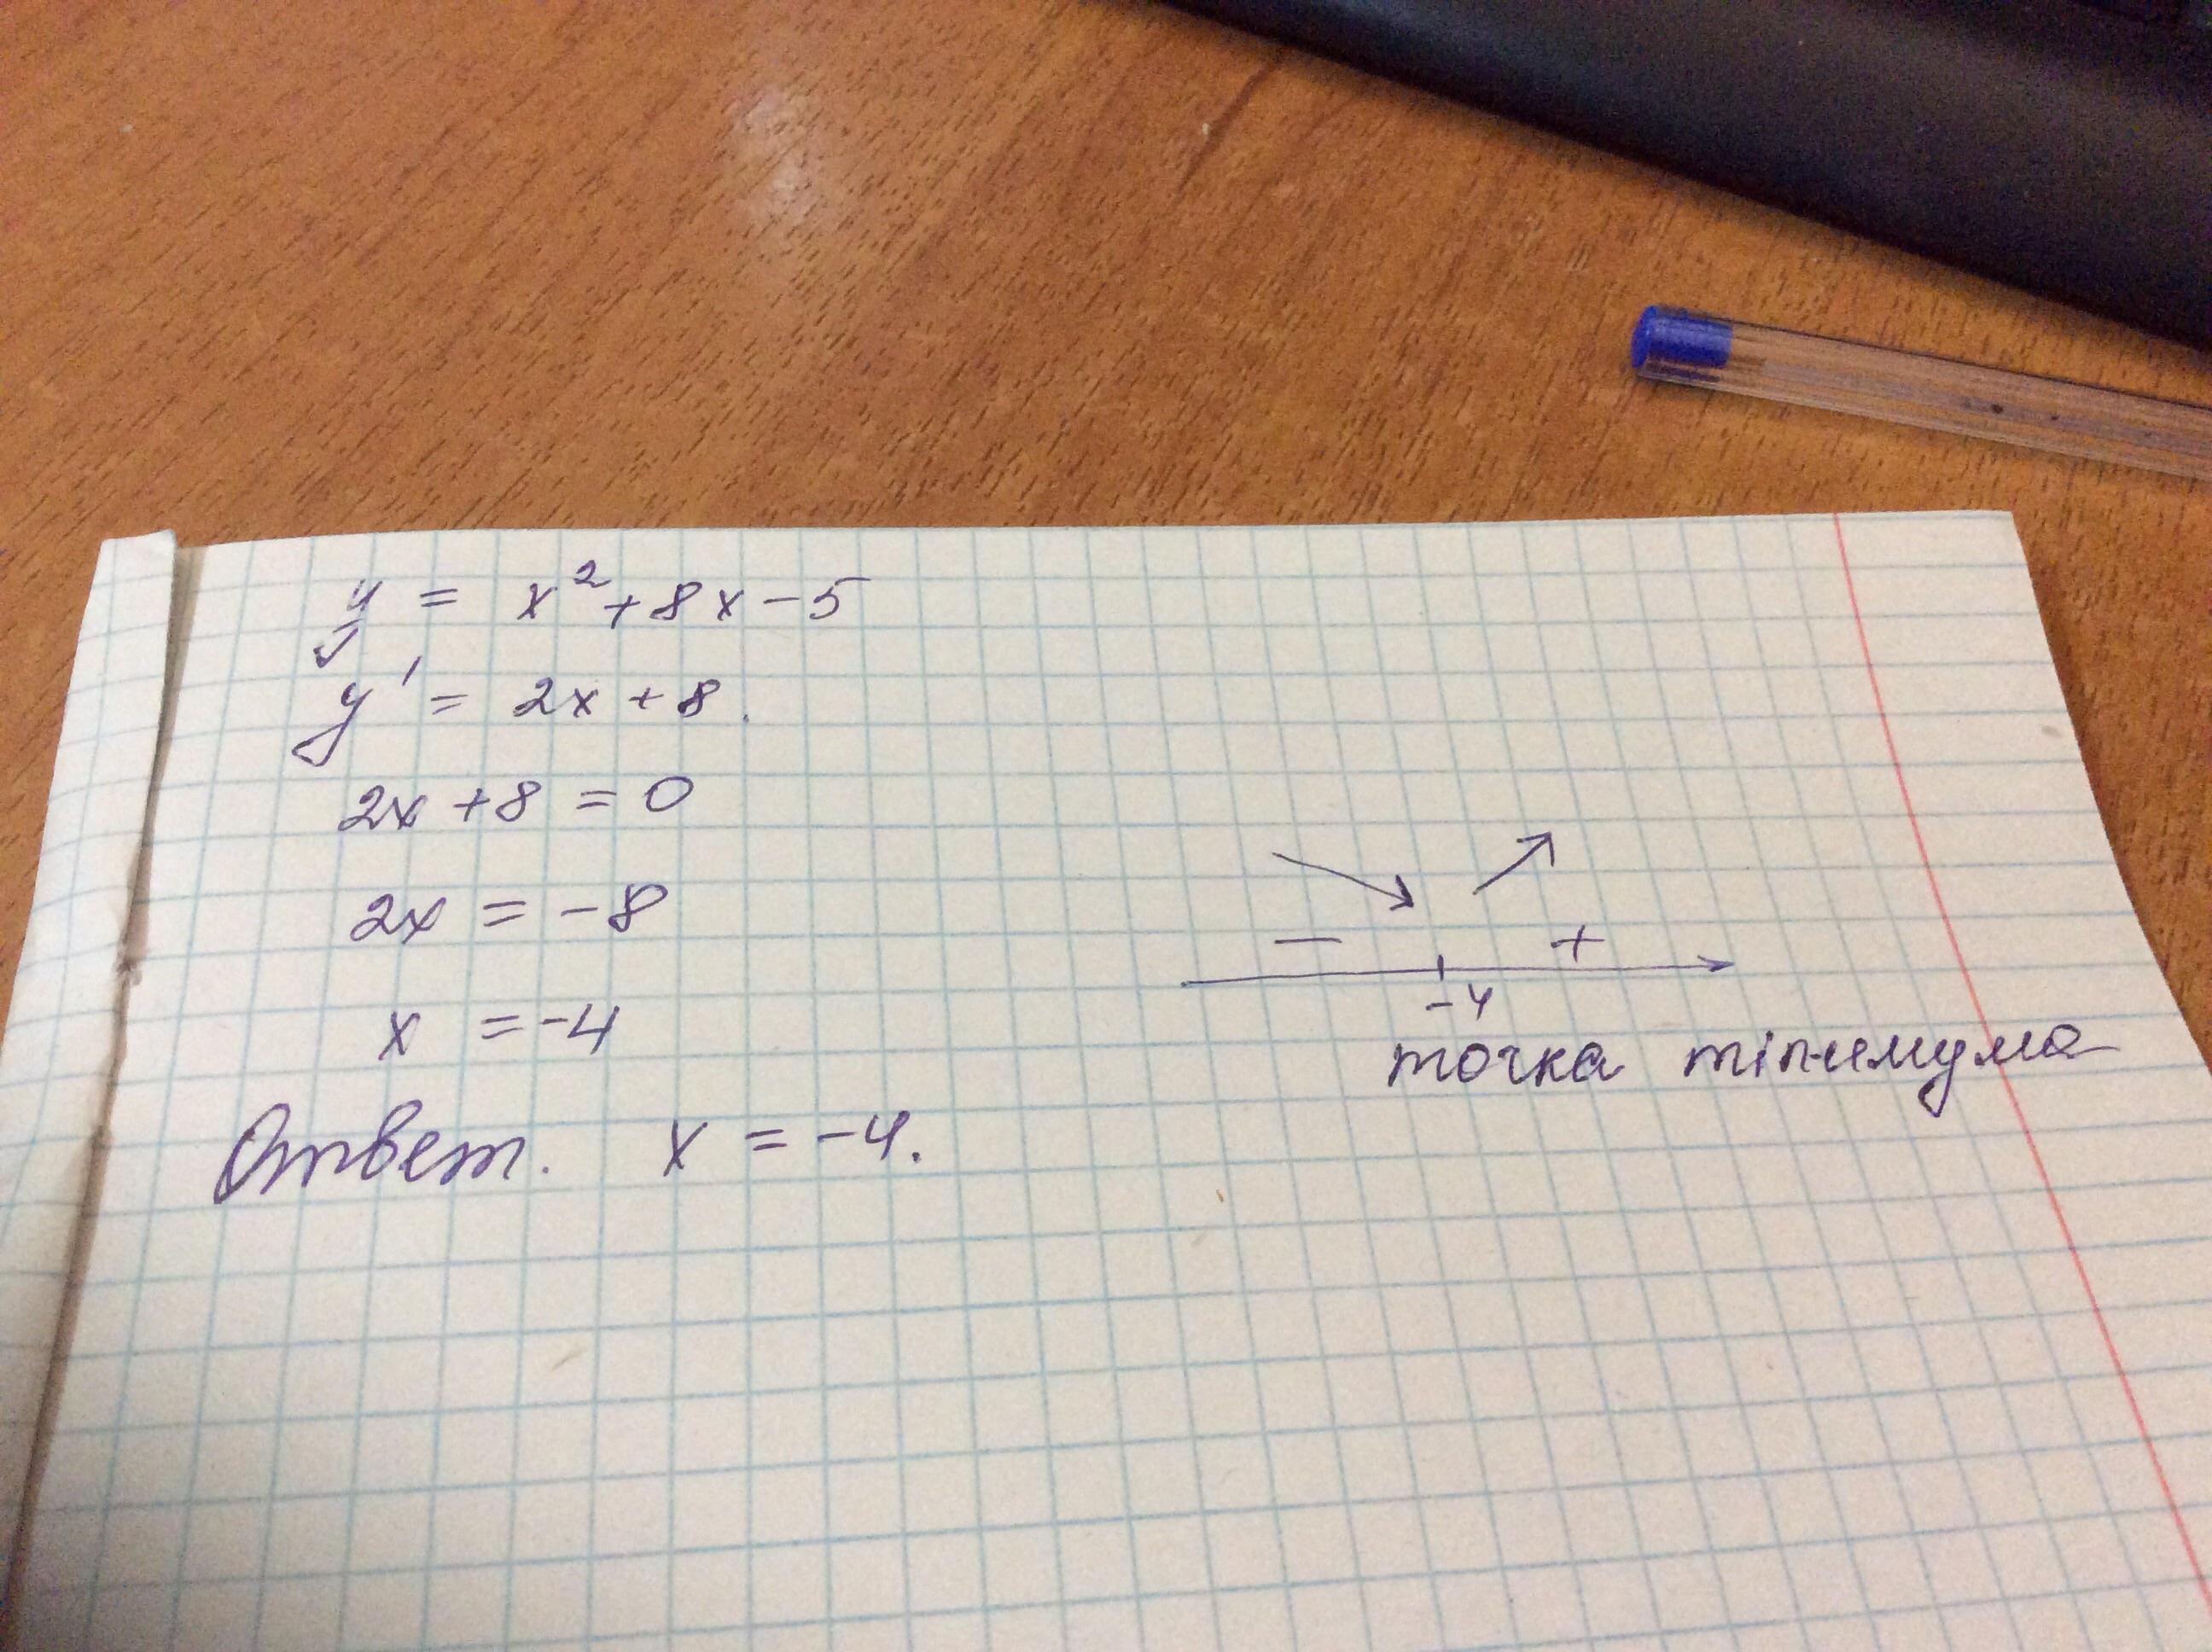 y = x² + 8x - 5
y' = 2x + 8.
2x + 8 = 0
2x = -8
x = -4
- +
-4
точка minимума
Ответ. x = -4.